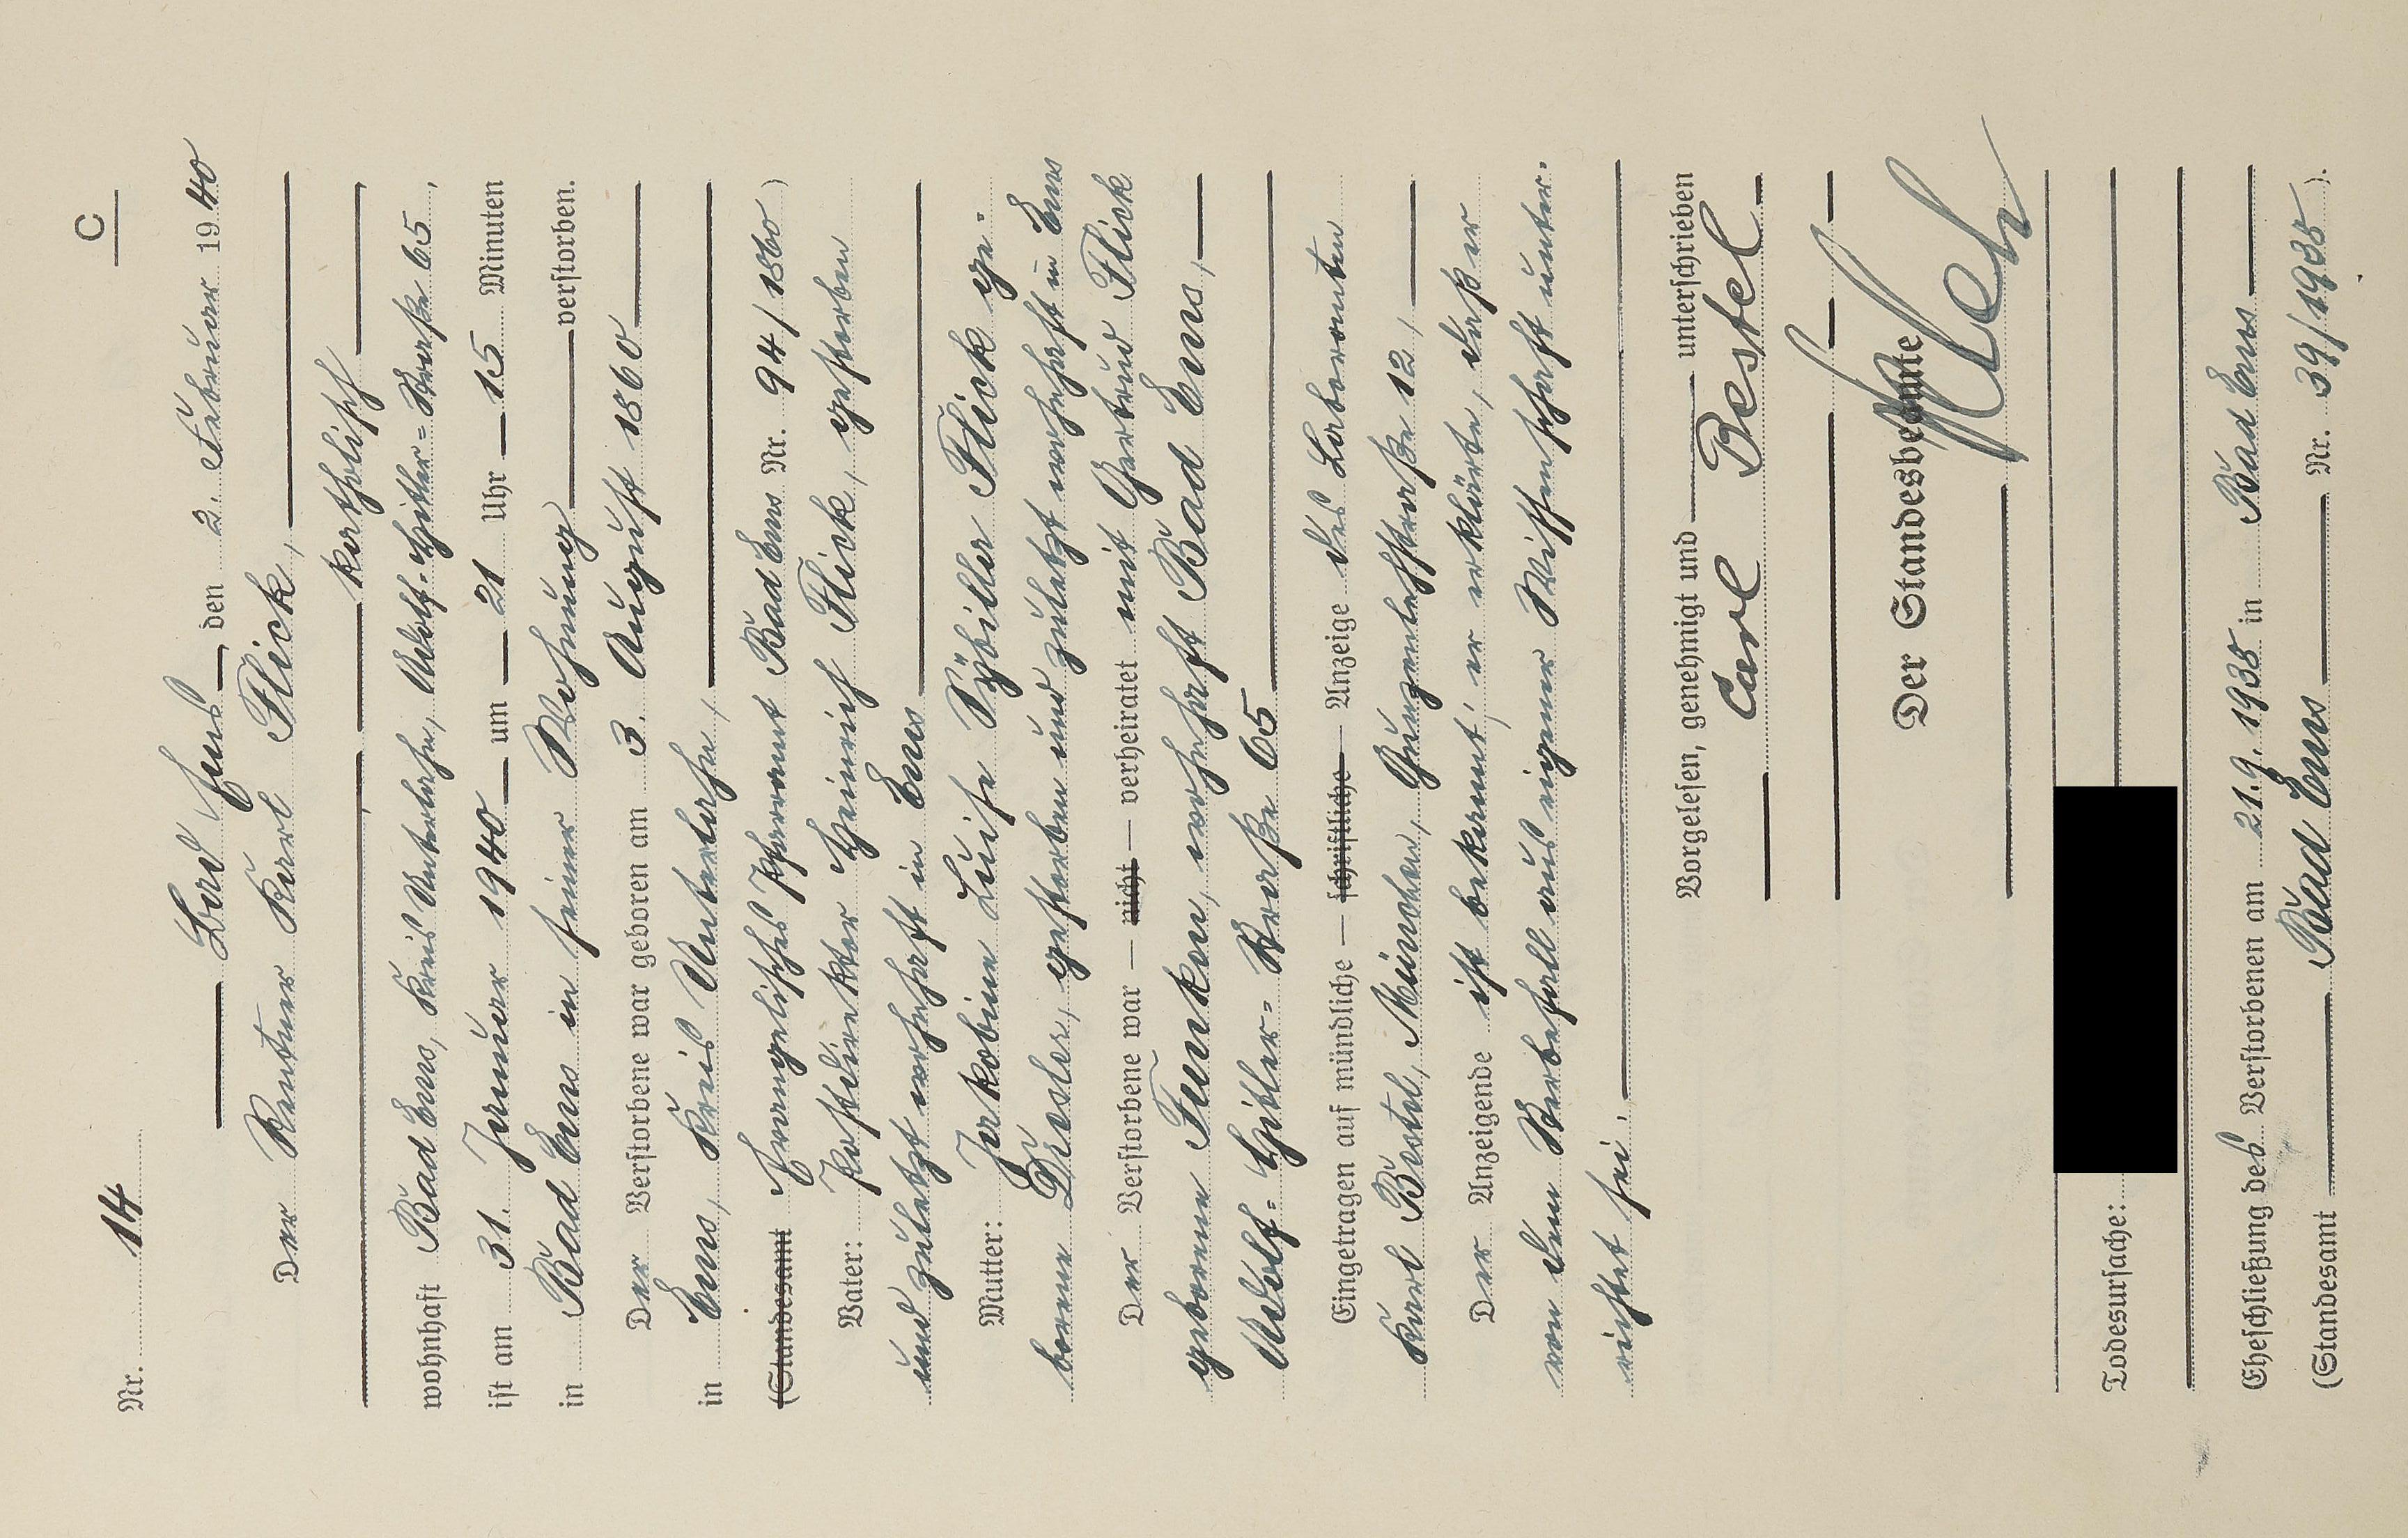 C
Nr. 14
Bad Ems, den 2. Februar 1940
Der Rentner Karl Flick,
katholisch
wohnhaft Bad Ems, Kreis Unterlahn, Adolf-Hitler-Straße 65,
ist am 31. Januar 1940 um 21 Uhr 15 Minuten
in Bad Ems in seiner Wohnung verstorben.
Der Verstorbene war geboren am 3. August 1860
in Ems, Kreis Unterlahn,
(Standesamt Evangelisches Pfarramt Bad Ems Nr. 94/1860)
Vater: Heinrich Flick, gestorben
und zuletzt wohnhaft in Ems
Mutter: Jakobine Luise Sybilla Flick ge-
borene, gestorben und zuletzt wohnhaft in Ems
Der Verstorbene war — nicht — verheiratet mit Gertrud Flick
geborene Funken, wohnhaft Bad Ems,
Adolf-Hitler-Straße 65
Eingetragen auf mündliche — schriftliche — Anzeige des Laboranten
Karl Bestel, München, Günzenlehstraße 12,
Der Anzeigende ist bekannt; er erklärte, daß er
von dem Sterbefall aus eigener Wissenschaft unter-
richtet sei.
Vorgelesen, genehmigt und unterschrieben
Carl Bestel
Der Standesbeamte
Todesursache:
Eheschließung des Verstorbenen am 21.9.1935 in Bad Ems
(Standesamt Bad Ems Nr. 39/1935).